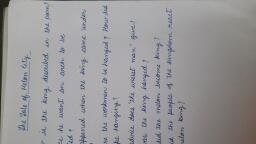 The Tale of Melon City
is the king described in the poem?
he want an arch to be
happened when the king came under
the workmen to be hanged? How did
hanging?
advice does "the wisest man" give?
was the king hanged?
did the melon become king?
did the people of the kingdom react
melon king?